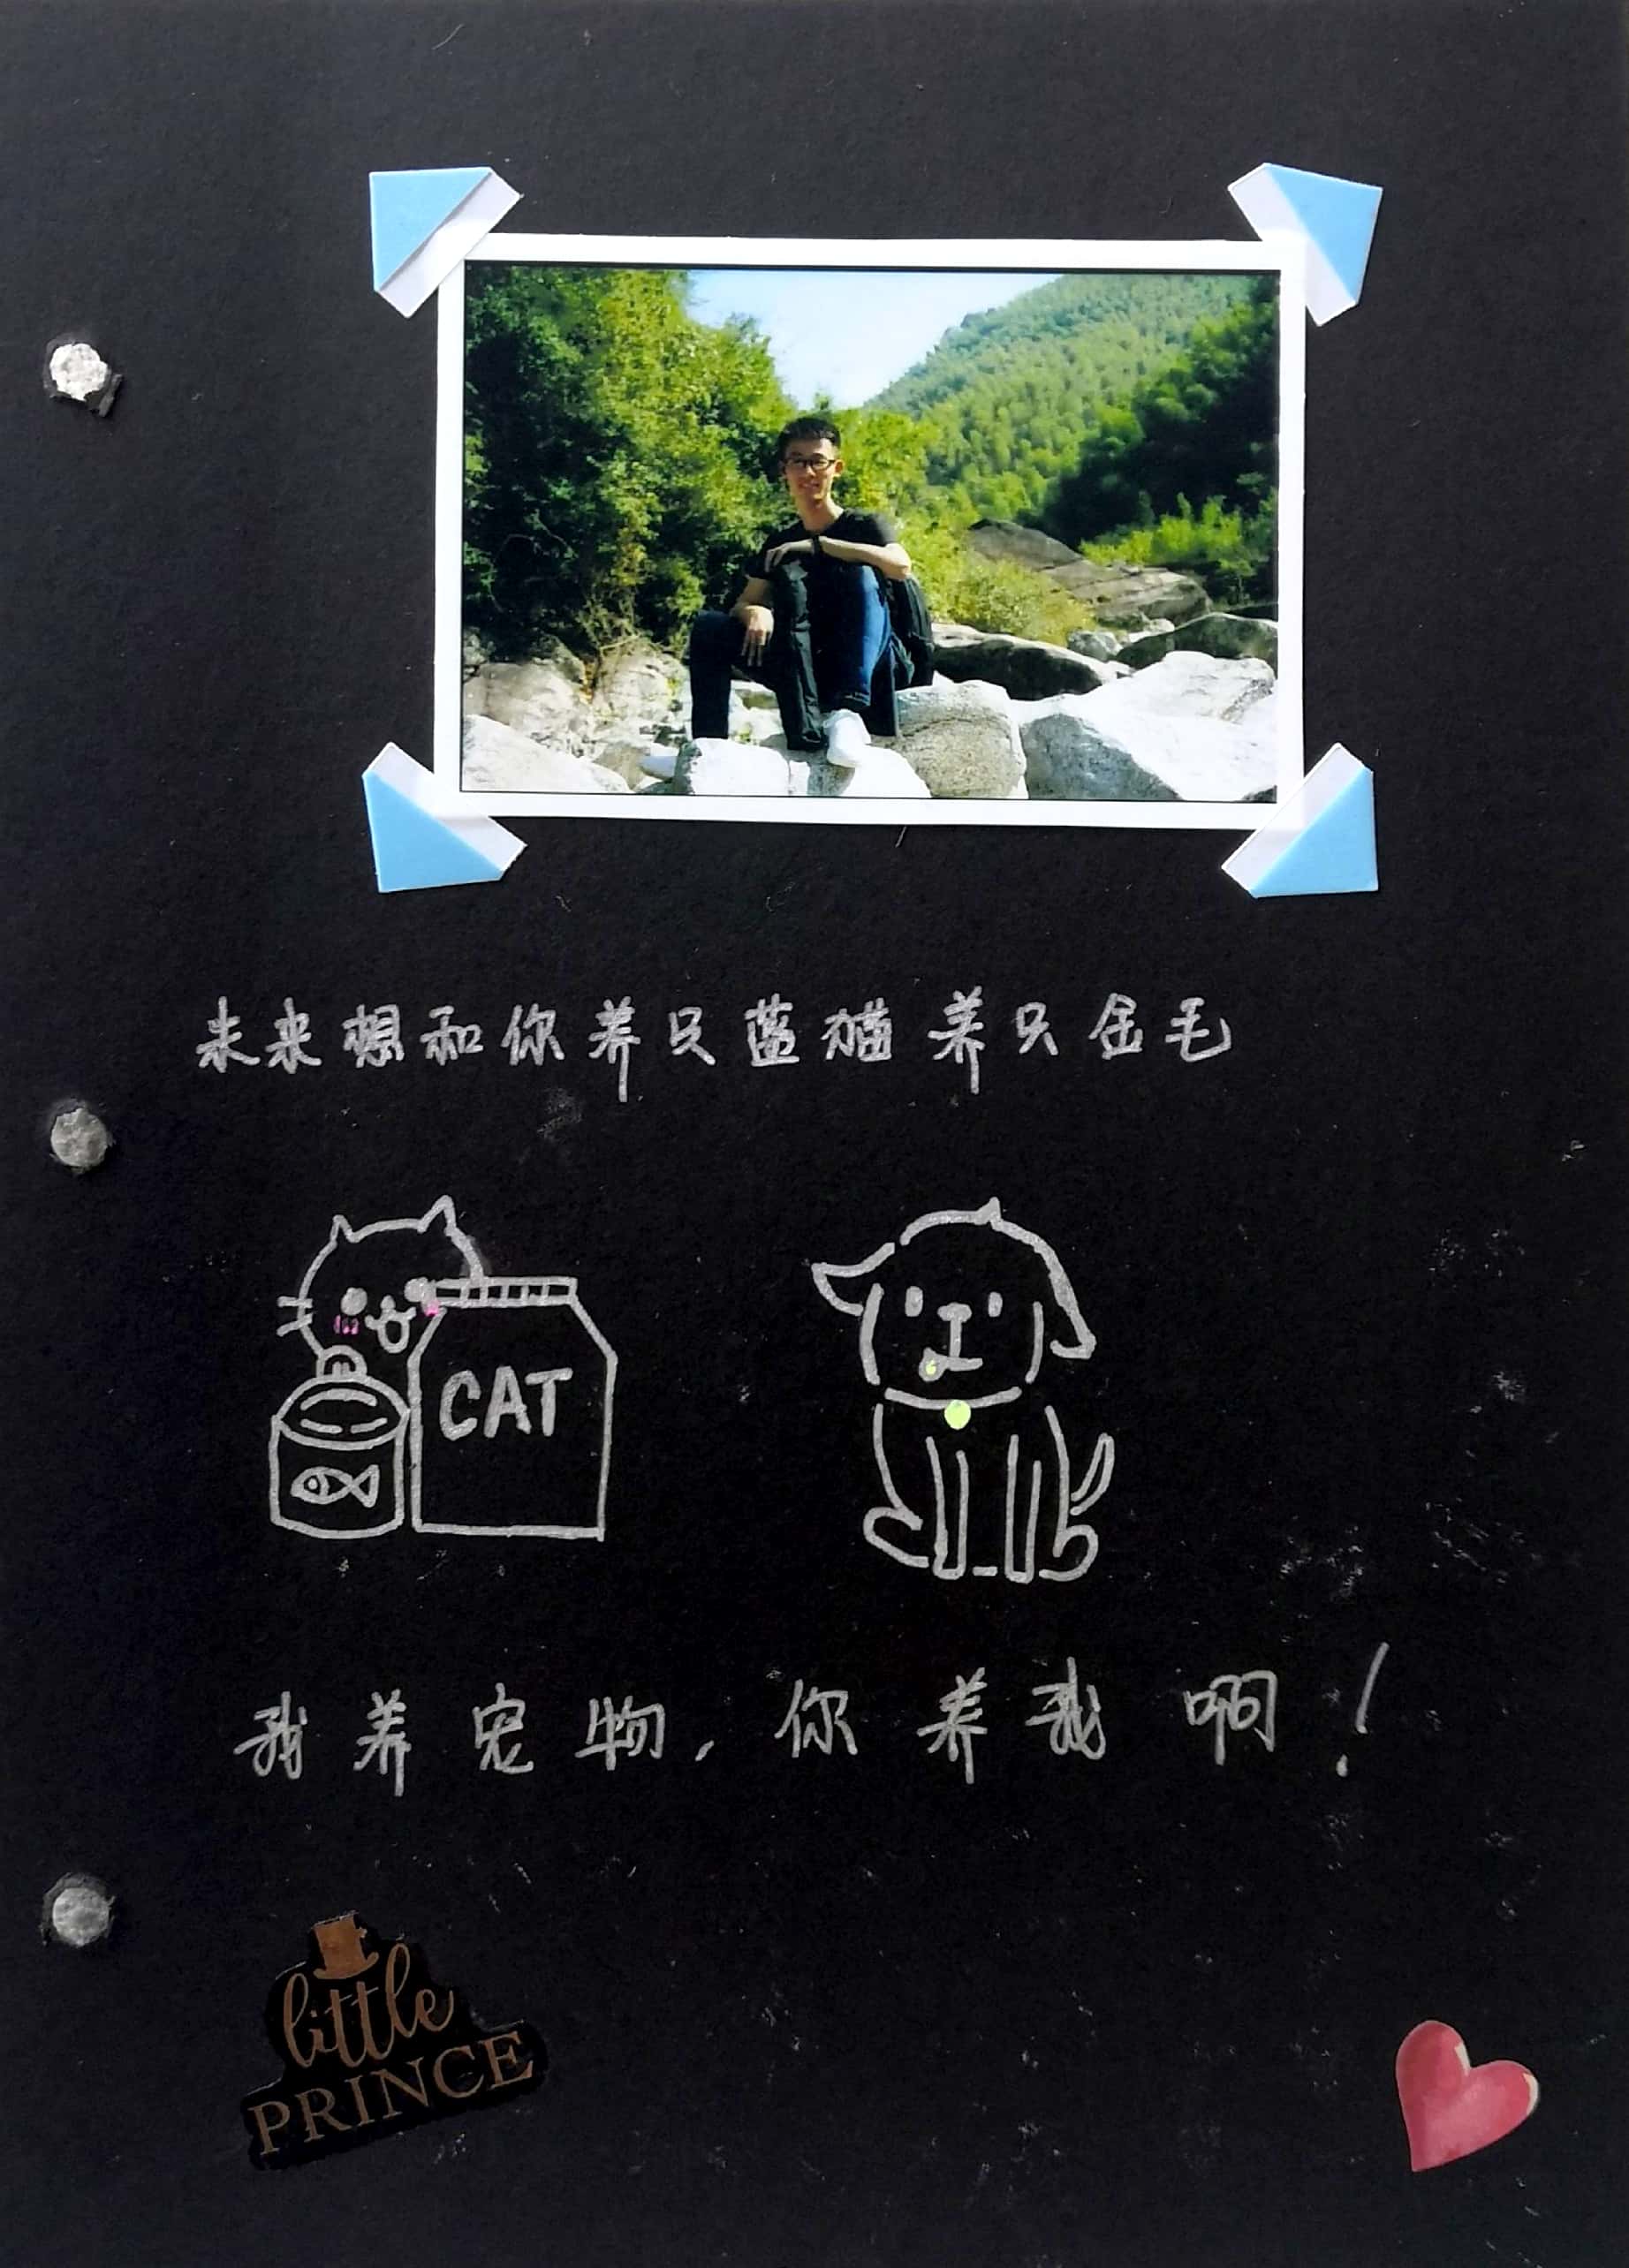 未来想和你养只蓝猫养只金毛
CAT
我养宠物，你养我啊！
little
PRINCE